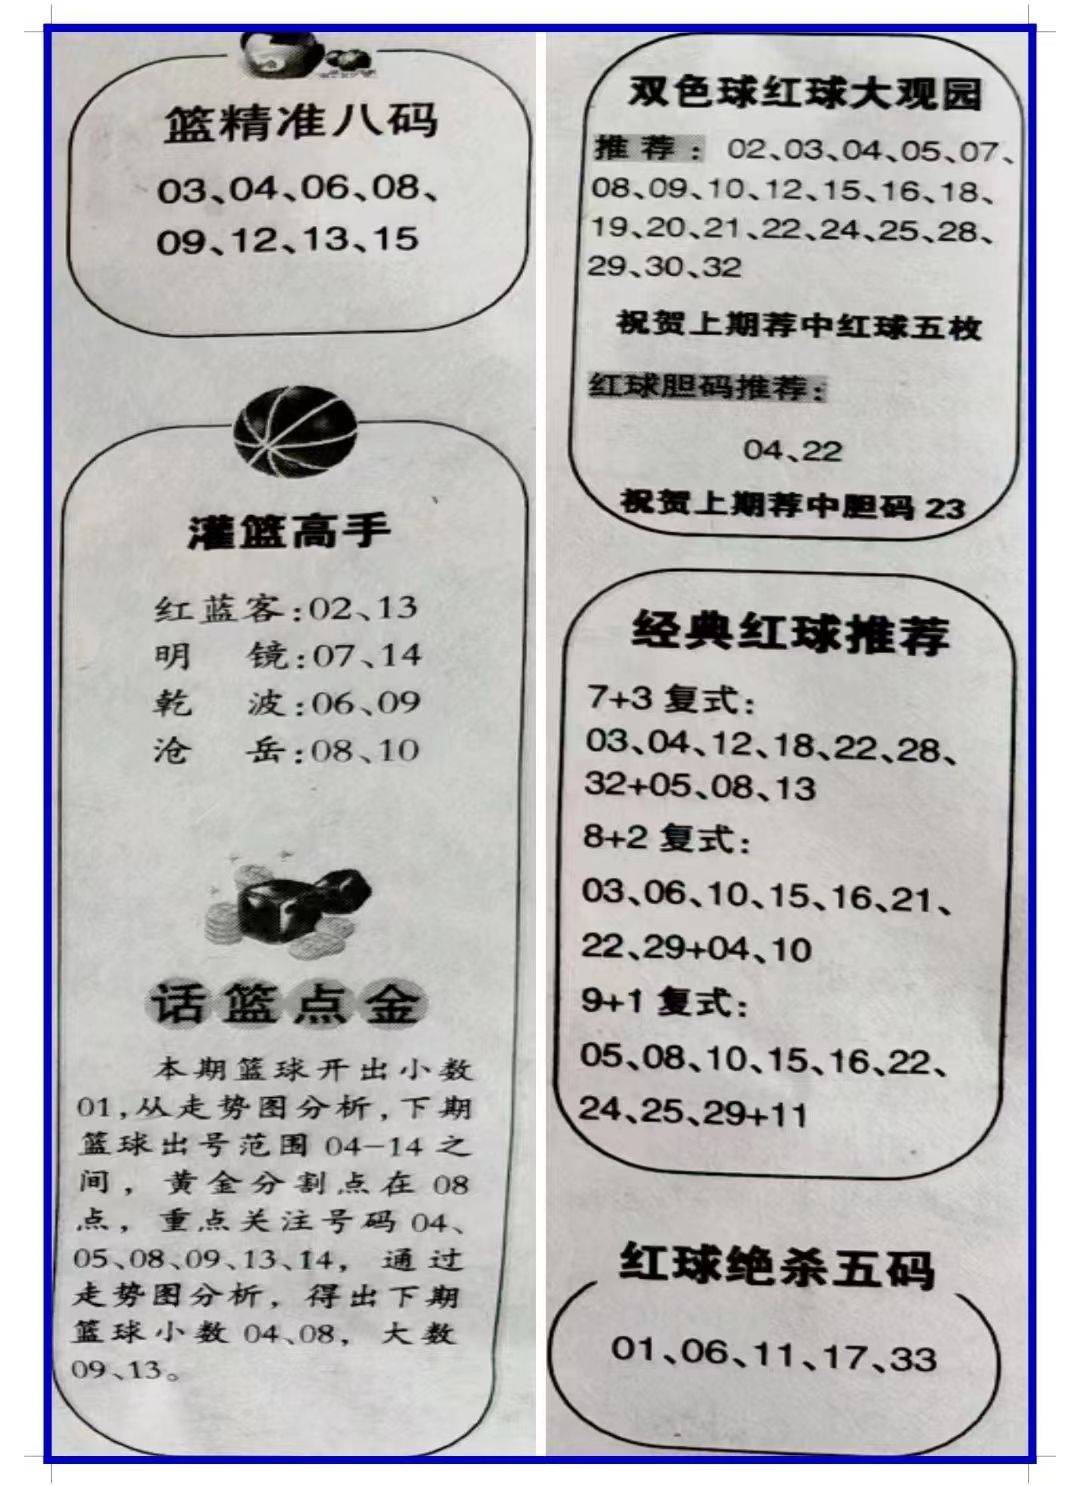 篮精准八码
03、04、06、08、
09、12、13、15
灌篮高手
红蓝客:02、13
明 镜:07、14
乾 波:06、09
沧 岳:08、10
话篮点金
本期篮球开出小数
01,从走势图分析,下期
篮球出号范围 04-14 之
间，黄金分割点在 08
点，重点关注号码 04、
05、08、09、13、14，通过
走势图分析，得出下期
篮球小数 04、08，大数
09、13。
双色球红球大观园
推荐：02、03、04、05、07、
08、09、10、12、15、16、18、
19、20、21、22、24、25、28、
29、30、32
祝贺上期荐中红球五枚
红球胆码推荐：
04、22
祝贺上期荐中胆码 23
经典红球推荐
7+3 复式：
03、04、12、18、22、28、
32+05、08、13
8+2 复式：
03、06、10、15、16、21、
22、29+04、10
9+1 复式：
05、08、10、15、16、22、
24、25、29+11
红球绝杀五码
01、06、11、17、33